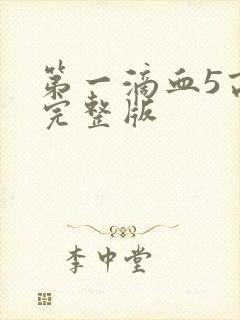 第一滴血5高
完整版
李中堂